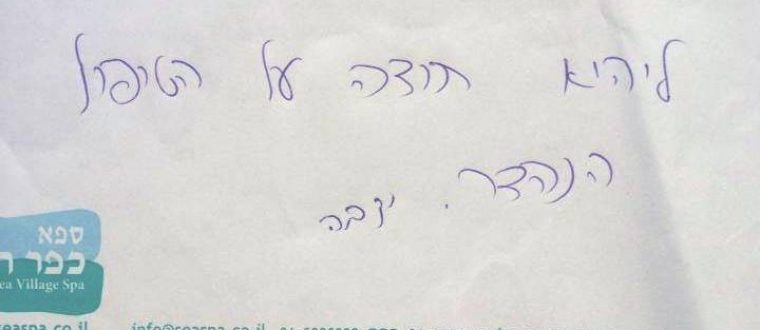 ליהיא תודה על הטיפול
הנהדר. יובה
ספא
כפר ה
ea Village Spa
easpa.co.il info@seaspa.co.il